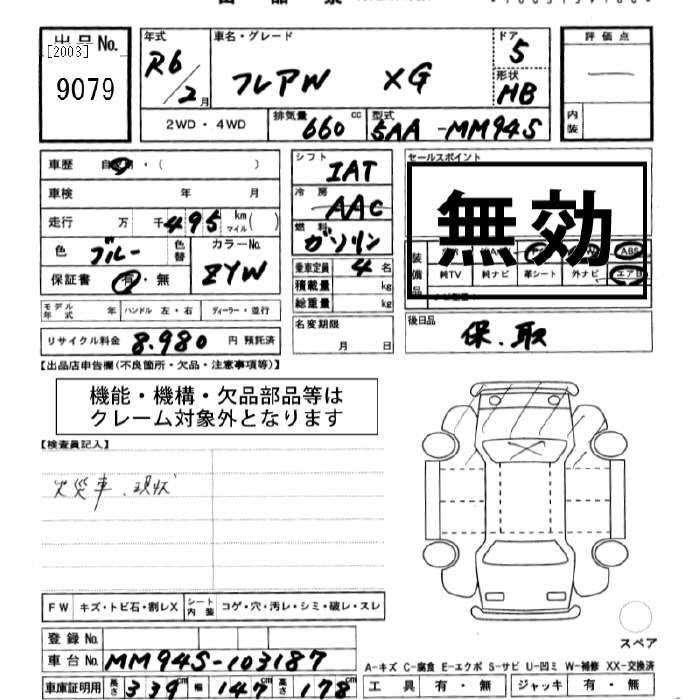 出品No. [2003]
9079
年式 R6/2月
車名・グレード フレアW XG
ドア 5
形状 HB
評価点 —
内装
2WD・4WD
排気量 660 cc
型式 5AA-MM94S
車歴 自家用・( )
車検 年 月
走行 万 千 495 km マイル ( )
色 ブルー 色替
カラーNo. ZYW
保証書 有・無
シフト IAT
冷房 AAC
燃料 ガソリン
乗車定員 4名
積載量 kg
総重量 kg
セールスポイント
無効
装備品
ABS
純TV 純ナビ 革シート 外ナビ エアB
モデル年式 年 ハンドル 左・右 ディーラー・並行
リサイクル料金 8,980 円 預託済
名変期限 月 日
後日品 保.取
【出品店申告欄(不良箇所・欠品・注意事項等)】
機能・機構・欠品部品等は
クレーム対象外となります
【検査員記入】
火災車.現状
FW キズ・トビ石・割レX シート内装 コゲ・穴・汚レ・シミ・破レ・スレ
スペア
登録No.
車台No. MM94S-103187
A-キズ C-腐食 E-エクボ S-サビ U-凹ミ W-補修 XX-交換済
車庫証明用 長さ 339 cm 幅 147 cm 高さ 178 cm
工具 有・無 ジャッキ 有・無